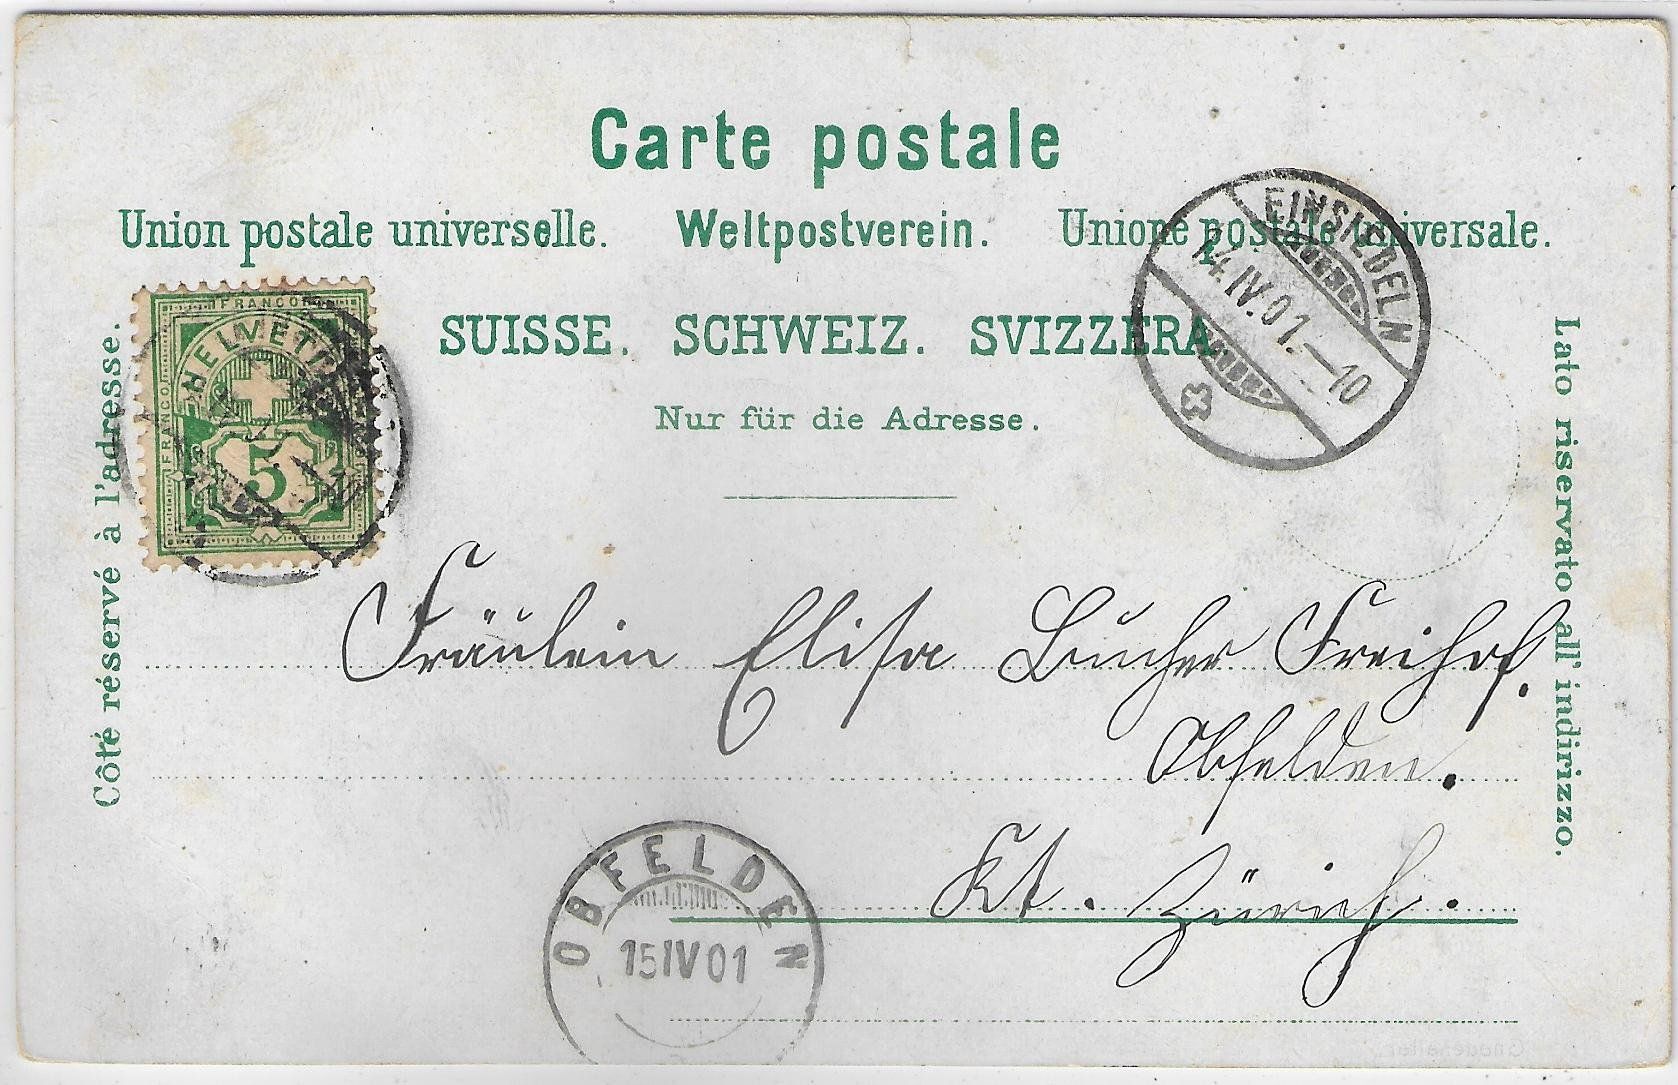 Carte postale
Union postale universelle. Weltpostverein. Unione postale universale.
SUISSE. SCHWEIZ. SVIZZERA.
Nur für die Adresse.
Côté réservé à l'adresse.
Lato riservato all' indirizzo.
FRANCO
FRANCO
HELVETIA
5
EINSIEDELN
14.IV.01.–10
Fräulein Elisa Bucher Freihof.
Obfelden.
Kt. Zürich.
OBFELDEN
15 IV 01